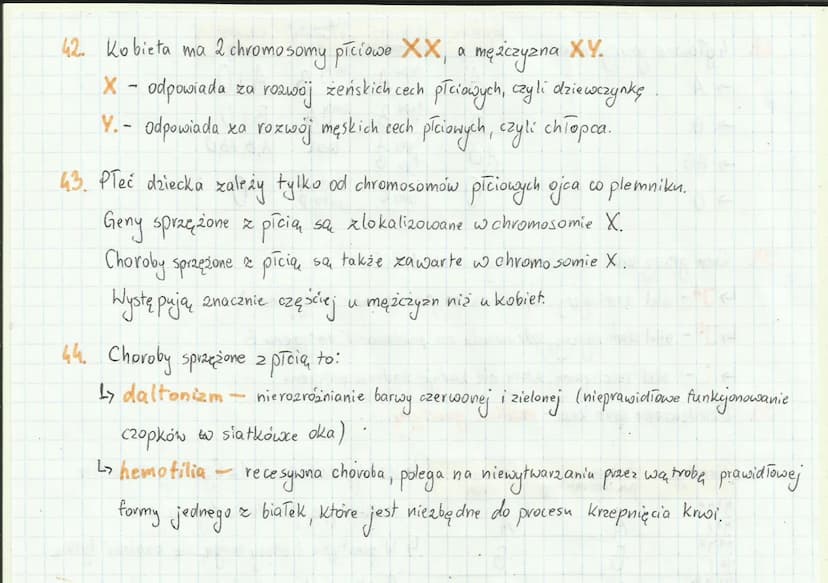 42. Kobieta ma 2 chromosomy płciowe XX, a mężczyzna XY.
X - odpowiada za rozwój żeńskich cech płciowych, czyli dziewczynkę.
Y. - odpowiada za rozwój męskich cech płciowych, czyli chłopca.
43. Płeć dziecka zależy tylko od chromosomów płciowych ojca co plemniku.
Geny sprzężone z płcią są zlokalizowane w chromosomie X.
Choroby sprzężone z płcią są także zawarte w chromosomie X.
Występują znacznie częściej u mężczyzn niż u kobiet.
44. Choroby sprzężone z płcią to:
↳ daltonizm – nierozróżnianie barwy czerwonej i zielonej (nieprawidłowe funkcjonowanie
czopków w siatkówce oka)
↳ hemofilia – recesywna choroba, polega na niewytwarzaniu przez wątrobę prawidłowej
formy jednego z białek, które jest niezbędne do procesu krzepnięcia krwi.